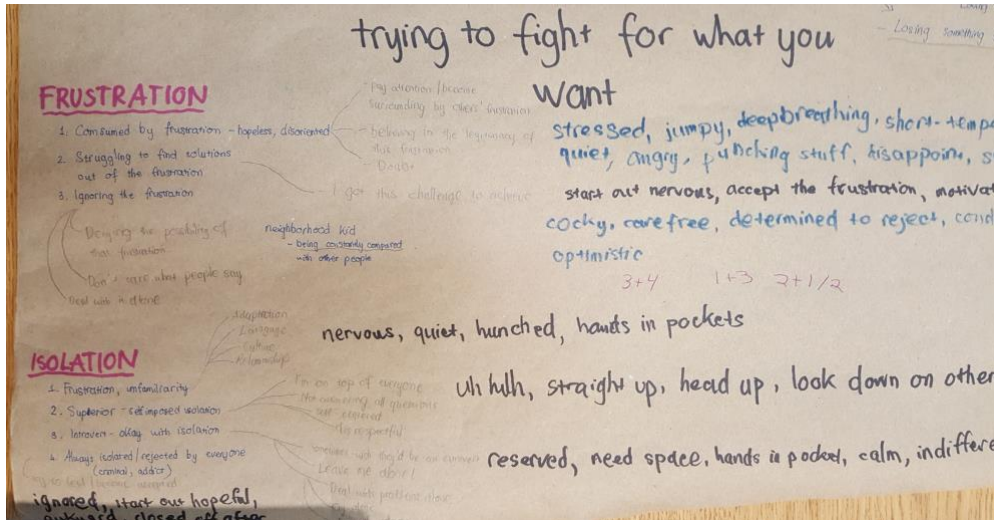 trying to fight for what you
want
- Losing something
FRUSTRATION
1. Consumed by frustration - hopeless, disoriented
2. Struggling to find solutions
out of the frustration
3. Ignoring the frustration
- Pay attention/become
surrounding by others' frustration
- believing in the legitimacy of
- I got this challenge to achieve
Denying the possibility of
frustration
Don't care what people say
Deal with it alone
neighborhood kid
- being constantly compared
with other people
stressed, jumpy, deep breathing, short-temp
quiet, angry, punching stuff, disappoint, s
start out nervous, accept the frustration, motivat
cocky, carefree, determined to reject, cond
optimistic
3+4 1+3 2+1/2
nervous, quiet, hunched, hands in pockets
ISOLATION
Adaptation
Language
Culture
Relationship
1. Frustration, unfamiliarity
2. Superior - self imposed isolation
3. Introvert - okay with isolation
4. Always isolated/rejected by everyone
(criminal, addict)
I'm on top of everyone
Not answering all questions
self centered
Disrespectful
Leave me alone!
Deal with problem alone
uh huh, straight up, head up, look down on other
reserved, need space, hands in pocket, calm, indiffere
ignored, start out hopeful,
awkward, closed off after